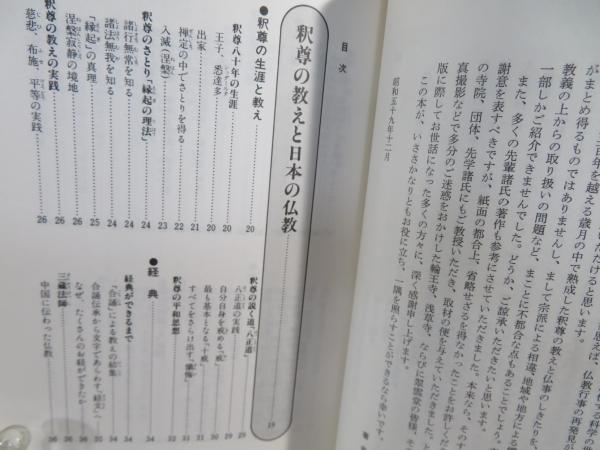 三百年を越える歳月の中で熟成した釈尊の教えと仏事のしきたりを、
がまとめ得るものではありませんし、まして宗派による相違、地域や地方による
教義の上からの取り扱いの問題など、まことに不都合な点もあることでしょう。
一部しかご紹介できませんでした。どうか、ご諒承いただきたいと思います。
また、多くの先輩諸氏の著作も参考にさせていただきました。本来なら、その
謝意を表すべきですが、紙面の都合上、省略せざるを得なかったことをお許しくだ
の寺院、団体、先学諸氏にもご教授いただき、取材の便を与えていただきました。
真撮影などで多分のご迷惑をおかけした輪王寺、浅草寺、ならびに翠雲堂の皆様、そ
版に際してお世話になった多くの方々に、深く感謝申しあげます。
この本が、いささかなりともお役に立ち、一隅を照らすことができるなら幸いです。
昭和五十九年十二月
目次
釈尊の教えと日本の仏教 19
●釈尊の生涯と教え
釈尊八十年の生涯 20
王子、悉達多 20
出家 21
禅定の中でさとりを得る 22
入滅(涅槃) 23
釈尊のさとり、「縁起の理法」 24
諸行無常を知る 24
諸法無我を知る 24
「縁起」の真理 25
涅槃寂静の境地 26
釈尊の教えの実践 26
慈悲、布施、平等の実践 26
釈尊の説く道、「八正道」 29
八正道の実践 29
自分自身を戒める、「戒」 30
最も基本となる、「十戒」 31
すべてをさらけ出す、「懺悔」 31
釈尊の平和思想 32
●経典
経典ができるまで 34
「合誦」による教えの結集 34
合誦伝承から文字であらわす「経文」へ 35
なぜ、たくさんのお経ができたか 36
三蔵法師 36
中国に伝わった仏教 36